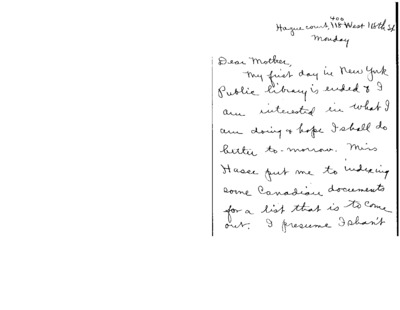 400
Hague court, 118 West 116th St
Monday
Dear Mother,
My first day in New York
Public library is ended & I
am interested in what I
am doing & hope I shall do
better to-morrow. Miss
Hasse put me to indexing
some Canadian documents
for a list that is to come
out. I presume I shan't